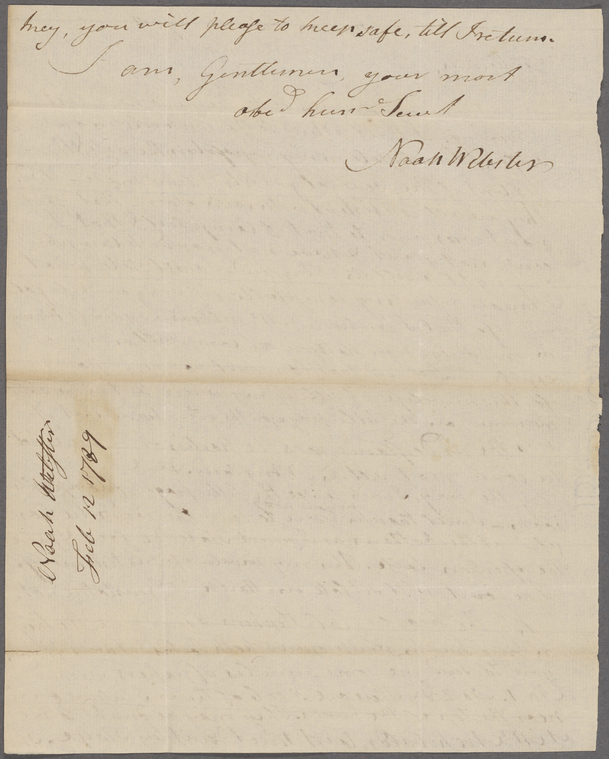 they, you will please to keep safe, till I return.
I am, Gentlemen, your most
obed hum Servt
Noah Webster
Noah Webster
Feb 12 1789